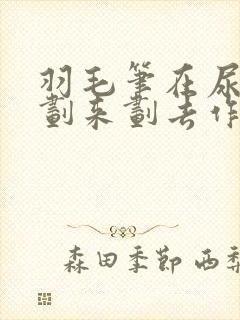 羽毛笔在尿
劃来劃去作
森田季節 西梨